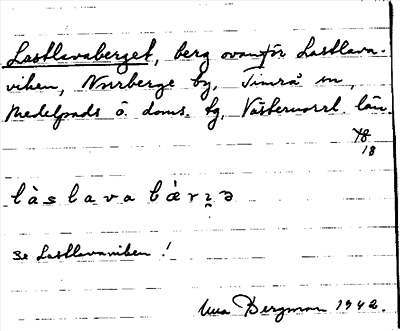 Lastlavaberget, berg ovanför Lastlava-
viken, Norrberge by, Timrå sn,
Medelpads ö. doms. sg, Västernorrl. län.
18
làslava bær
se Lastlavaviken!
Bergman 1942.